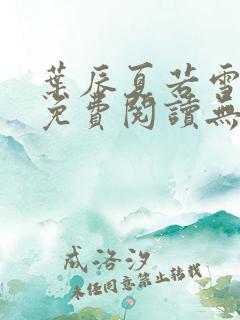 葉辰夏若雪
免費閱讀無
成洛汐
未經同意禁止轉載